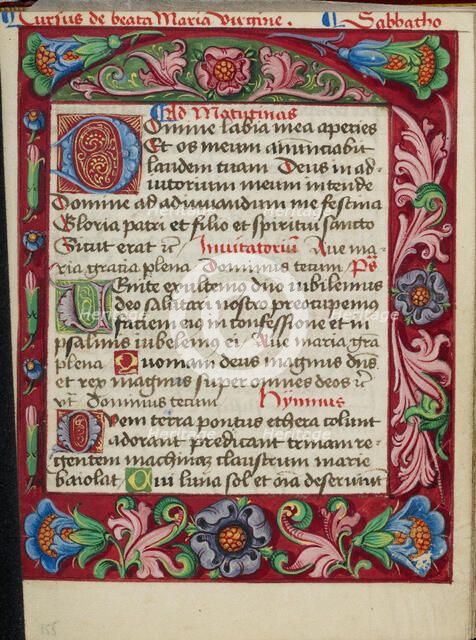 Cursus de beata Maria Virgine. Sabbatho
Ad Matutinas
Domine labia mea aperies
Et os meum anunciabit
laudem tuam Deus in ad
iutorium meum intende
Domine ad adiuuandum me festina
Gloria patri et filio et spiritui sancto
Sicut erat Inuitatorium Aue ma
ria gratia plena Dominus tecum Ps
Uenite exultemus dno iubilemus
deo salutari nostro preocupemus
faciem eius in confessione et in
psalmis iubilemus ei Aue maria gra
plena Quoniam deus magnus dns
et rex magnus super omnes deos
Dominus tecum Hymnus
Quem terra pontus ethera colunt
adorant predicant trinam re
gentem machinam claustrum marie
baiolat Cui luna sol et oia deseruiunt
155
Heritage
Heritage
Heritage
Heritage
Heritage
Heritage